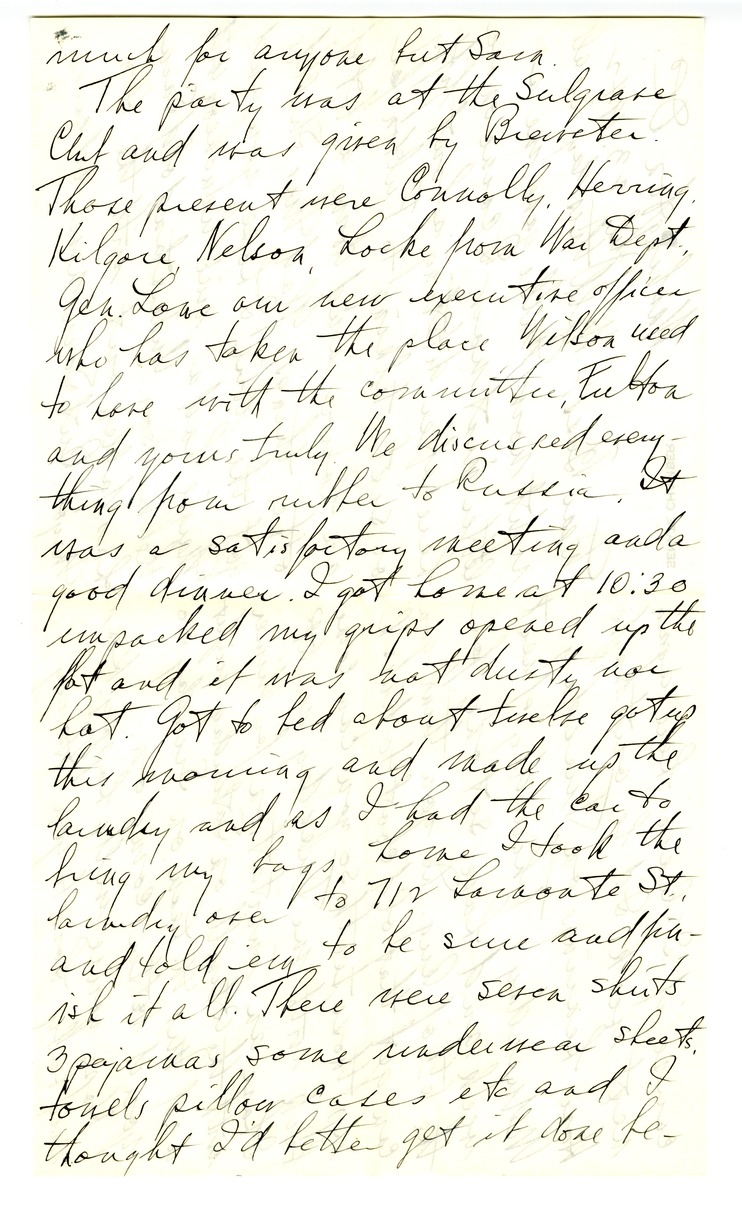 much for anyone but Sam.
The party was at the Sulgrave
Club and was given by Brewster.
Those present were Connolly, Herring,
Kilgore, Nelson, Locke from War Dept.,
Gen. Lowe our new executive officer
who has taken the place Wilson used
to have with the committee, Fulton
and yours truly. We discussed every-
thing from rubber to Russia. It
was a satisfactory meeting and a
good dinner. I got home at 10:30
unpacked my grips opened up the
flat and it was not dusty nor
hot. Got to bed about twelve got up
this morning and made up the
laundry and as I had the car to
bring my bags home I took the
laundry over to 712 Lamonte St.,
and told 'em to be sure and fin-
ish it all. There were seven shirts
3 pajamas some underwear sheets,
towels pillow cases etc and I
thought I'd better get it done be-